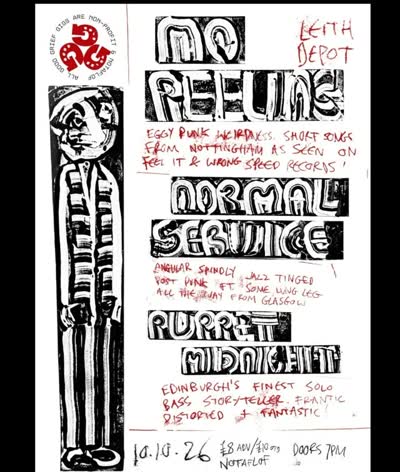 ALL GOOD GRIEF GIGS ARE NON-PROFIT & NOTAFLOF
GGG
LEITH
DEPOT
NO
PEELING
EGGY PUNK WEIRDNESS. SHORT SONGS
FROM NOTTINGHAM AS SEEN ON
FEEL IT & WRONG SPEED RECORDS!
NORMAL
SERVICE
ANGULAR SPINDLY JAZZ TINGED
POST PUNK FT SOME LUNG LEG
ALL THE WAY FROM GLASGOW
PUPPET
MIDNIGHT
EDINBURGH'S FINEST SOLO
BASS STORYTELLER. FRANTIC
DISTORTED + FANTASTIC!
10.10.26
£8 ADV/£10 OTD
NOTAFLOF
DOORS 7PM